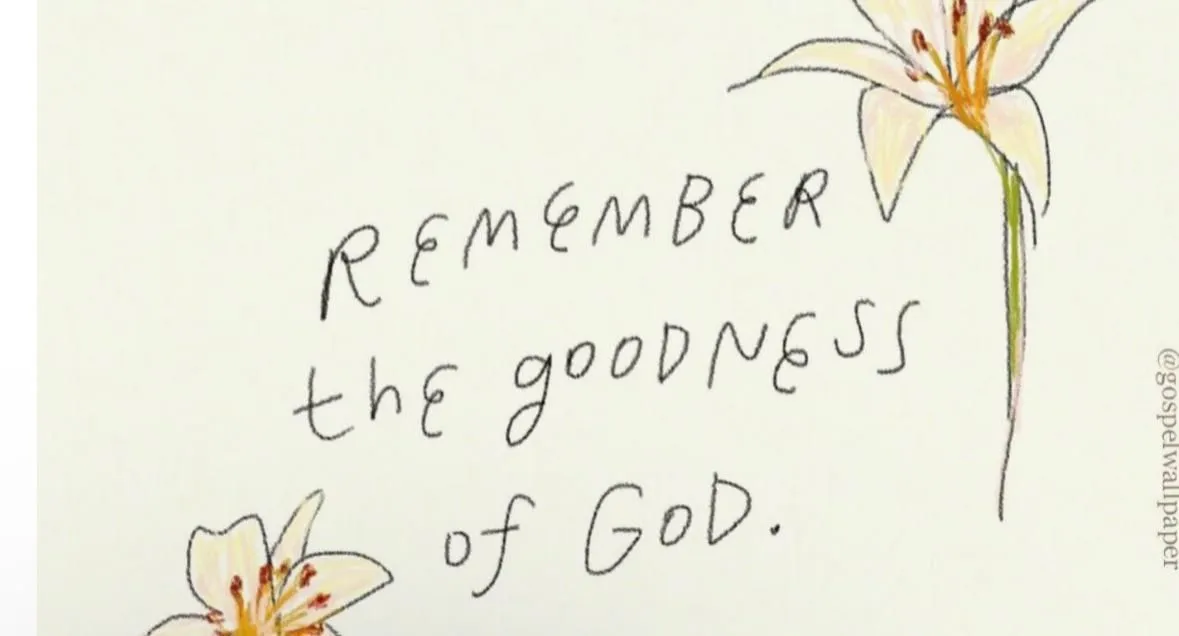 REMEMBER
thE gOODNESS
of GoD.
@gospelwallpaper